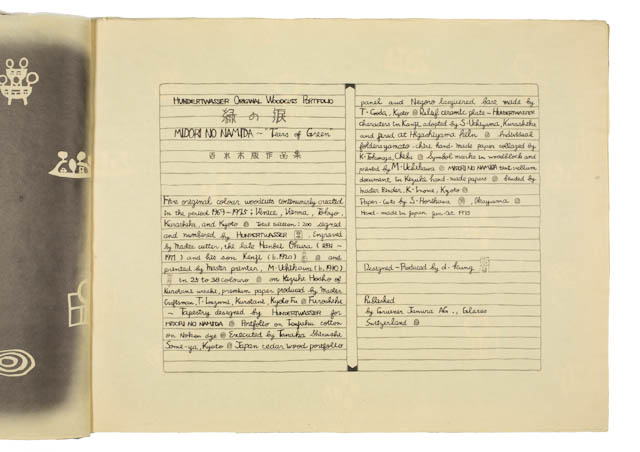 HUNDERTWASSER ORIGINAL WOODCUTS PORTFOLIO
緑の涙
MIDORI NO NAMIDA ~ "Tears of Green"
百水木版作品集
Five original colour woodcuts continuously created
in the period 1967-1975: Venice, Vienna, Tokyo,
Kurashiki, and Kyoto Total edition: 200 signed
and numbered by HUNDERTWASSER, Engraved
by Master cutter, the late Hanbei Okura (1894 ~
1977) and his son Kenji (b.1920) and
printed by master printer, M. Uchikawa (b.1940)
in 23 to 38 colours on Kizuki Hosho of
Kurotani washi, premium paper produced by Master
Craftsman, T. Kurotani, Kyoto Fu Furoshiki
~ Tapestry designed by HUNDERTWASSER for
MIDORI NO NAMIDA Portfolio on cotton
on dye Executed by Tanaka
Some-ya, Kyoto Japan cedar wood portfolio
panel and Negoro lacquered base made by
T. Goda, Kyoto Relief ceramic plate ~ HUNDERTWASSER
characters in Kanji, adopted by S. Uchiyama, Kurashiki
and fired at Higashiyama kiln Individual
folders yamato-chire hand-made paper collaged by
K. Chiba Symbol marks in woodblock and
printed by M. Uchikawa MIDORI NO NAMIDA text vellum
document, in Kizuki hand-made papers binded by
master Binder, K. Inoue, Kyoto
Paper-cuts by S. Okayama
Hand-made in Japan 1975
Designed-Produced by
Published
by Gruener Janura AG., Glarus
Switzerland